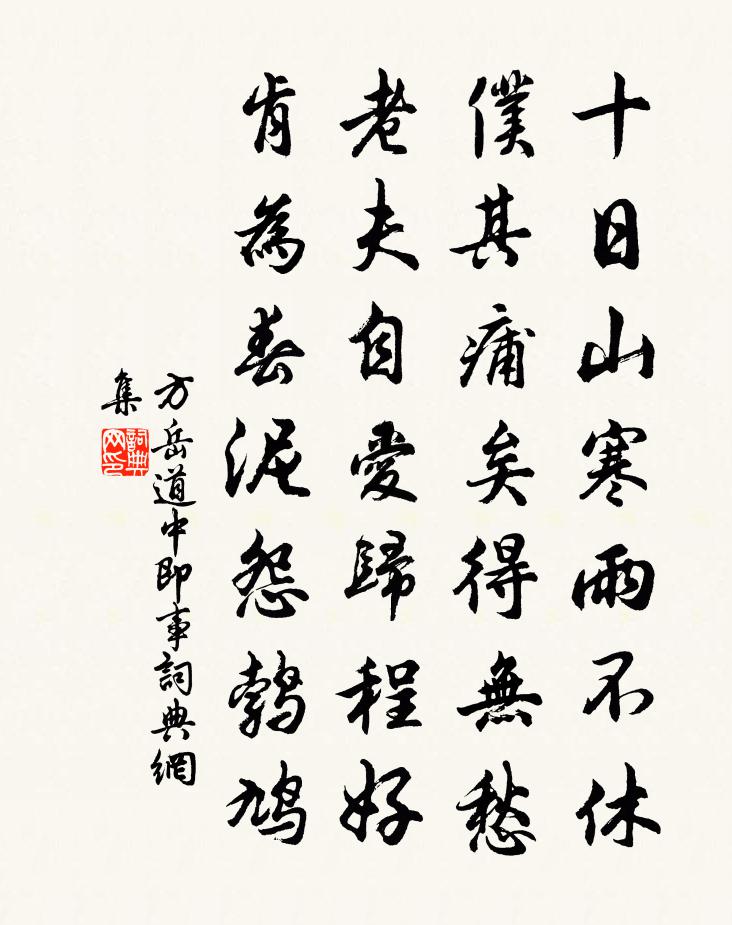 十日山寒雨不休
僕其痡矣得無愁
老夫自愛歸程好
肯為春泥怨鵓鳩
方岳道中即事詞典網
集
詞典网印